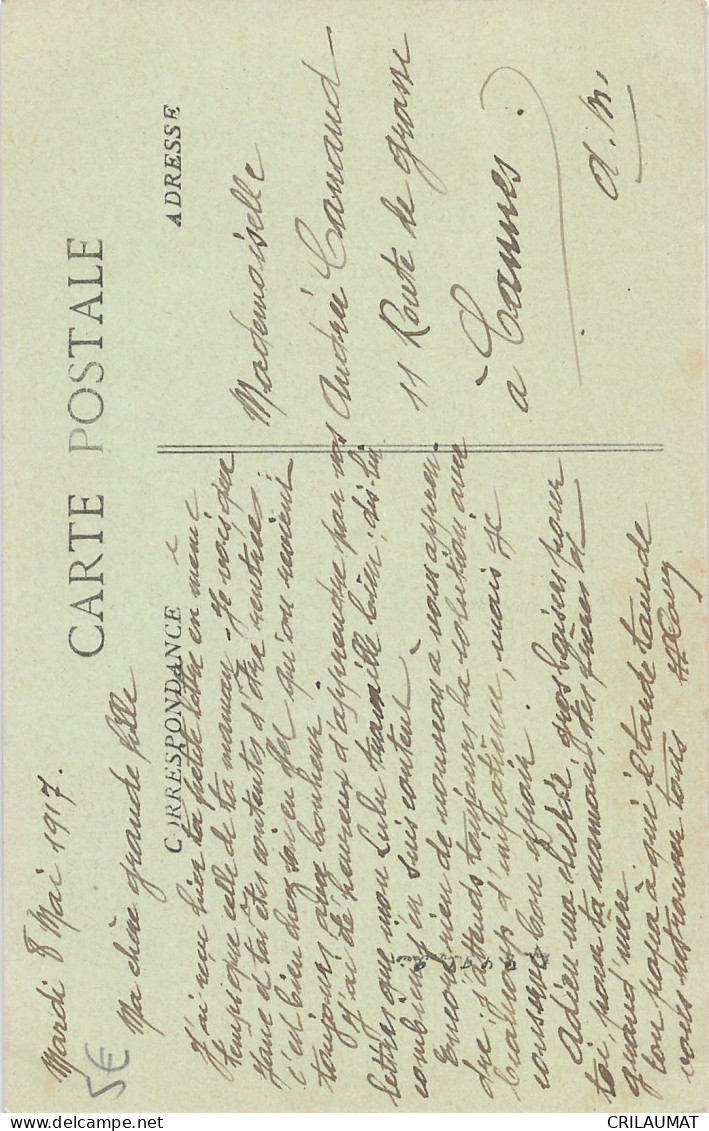 CARTE POSTALE
CORRESPONDANCE
ADRESSE
Mardi 8 Mai 1917.
Ma chère grande fille
J'ai reçu hier ta petite lettre en même
temps que celle de ta maman. Je vois que
Jane et toi êtes contentes d'être rentrées
c'est bien chez soi en fin qu'on revient
toujours avec bonheur.
J'ai été heureux d'apprendre par vos
lettres que mon Lulu travaille bien, dis-lui
combien j'en suis content.
Encore rien de nouveau à vous appren-
dre j'attends toujours la solution avec
beaucoup d'impatience, mais je
conserve bon espoir.
Adieu ma chérie, gros baisers pour
toi, pour ta maman, tes frères et
grand'mère
ton papa à qui il tarde tant de
vous retrouver tous
Mademoiselle
Andrée Canaud
11 Route de Grasse
à Cannes.
A. M.
5€
CRILAUMAT